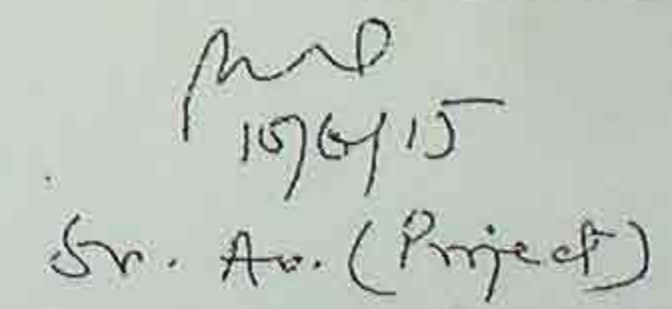 10/6/15
Sr. Ao. (Project)